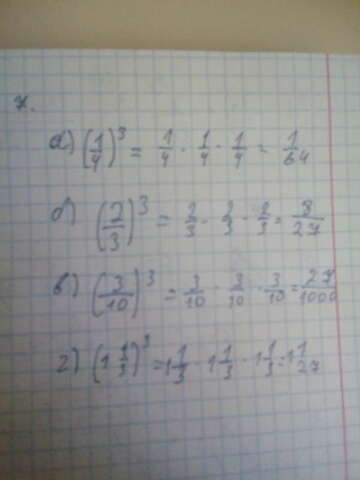 7.
а) (1/4)³ = 1/4 · 1/4 · 1/4 = 1/64
б) (2/3)³ = 2/3 · 2/3 · 2/3 = 8/27
в) (3/10)³ = 3/10 · 3/10 · 3/10 = 27/1000
г) (1 1/3)³ = 1 1/3 · 1 1/3 · 1 1/3 = 1 1/27